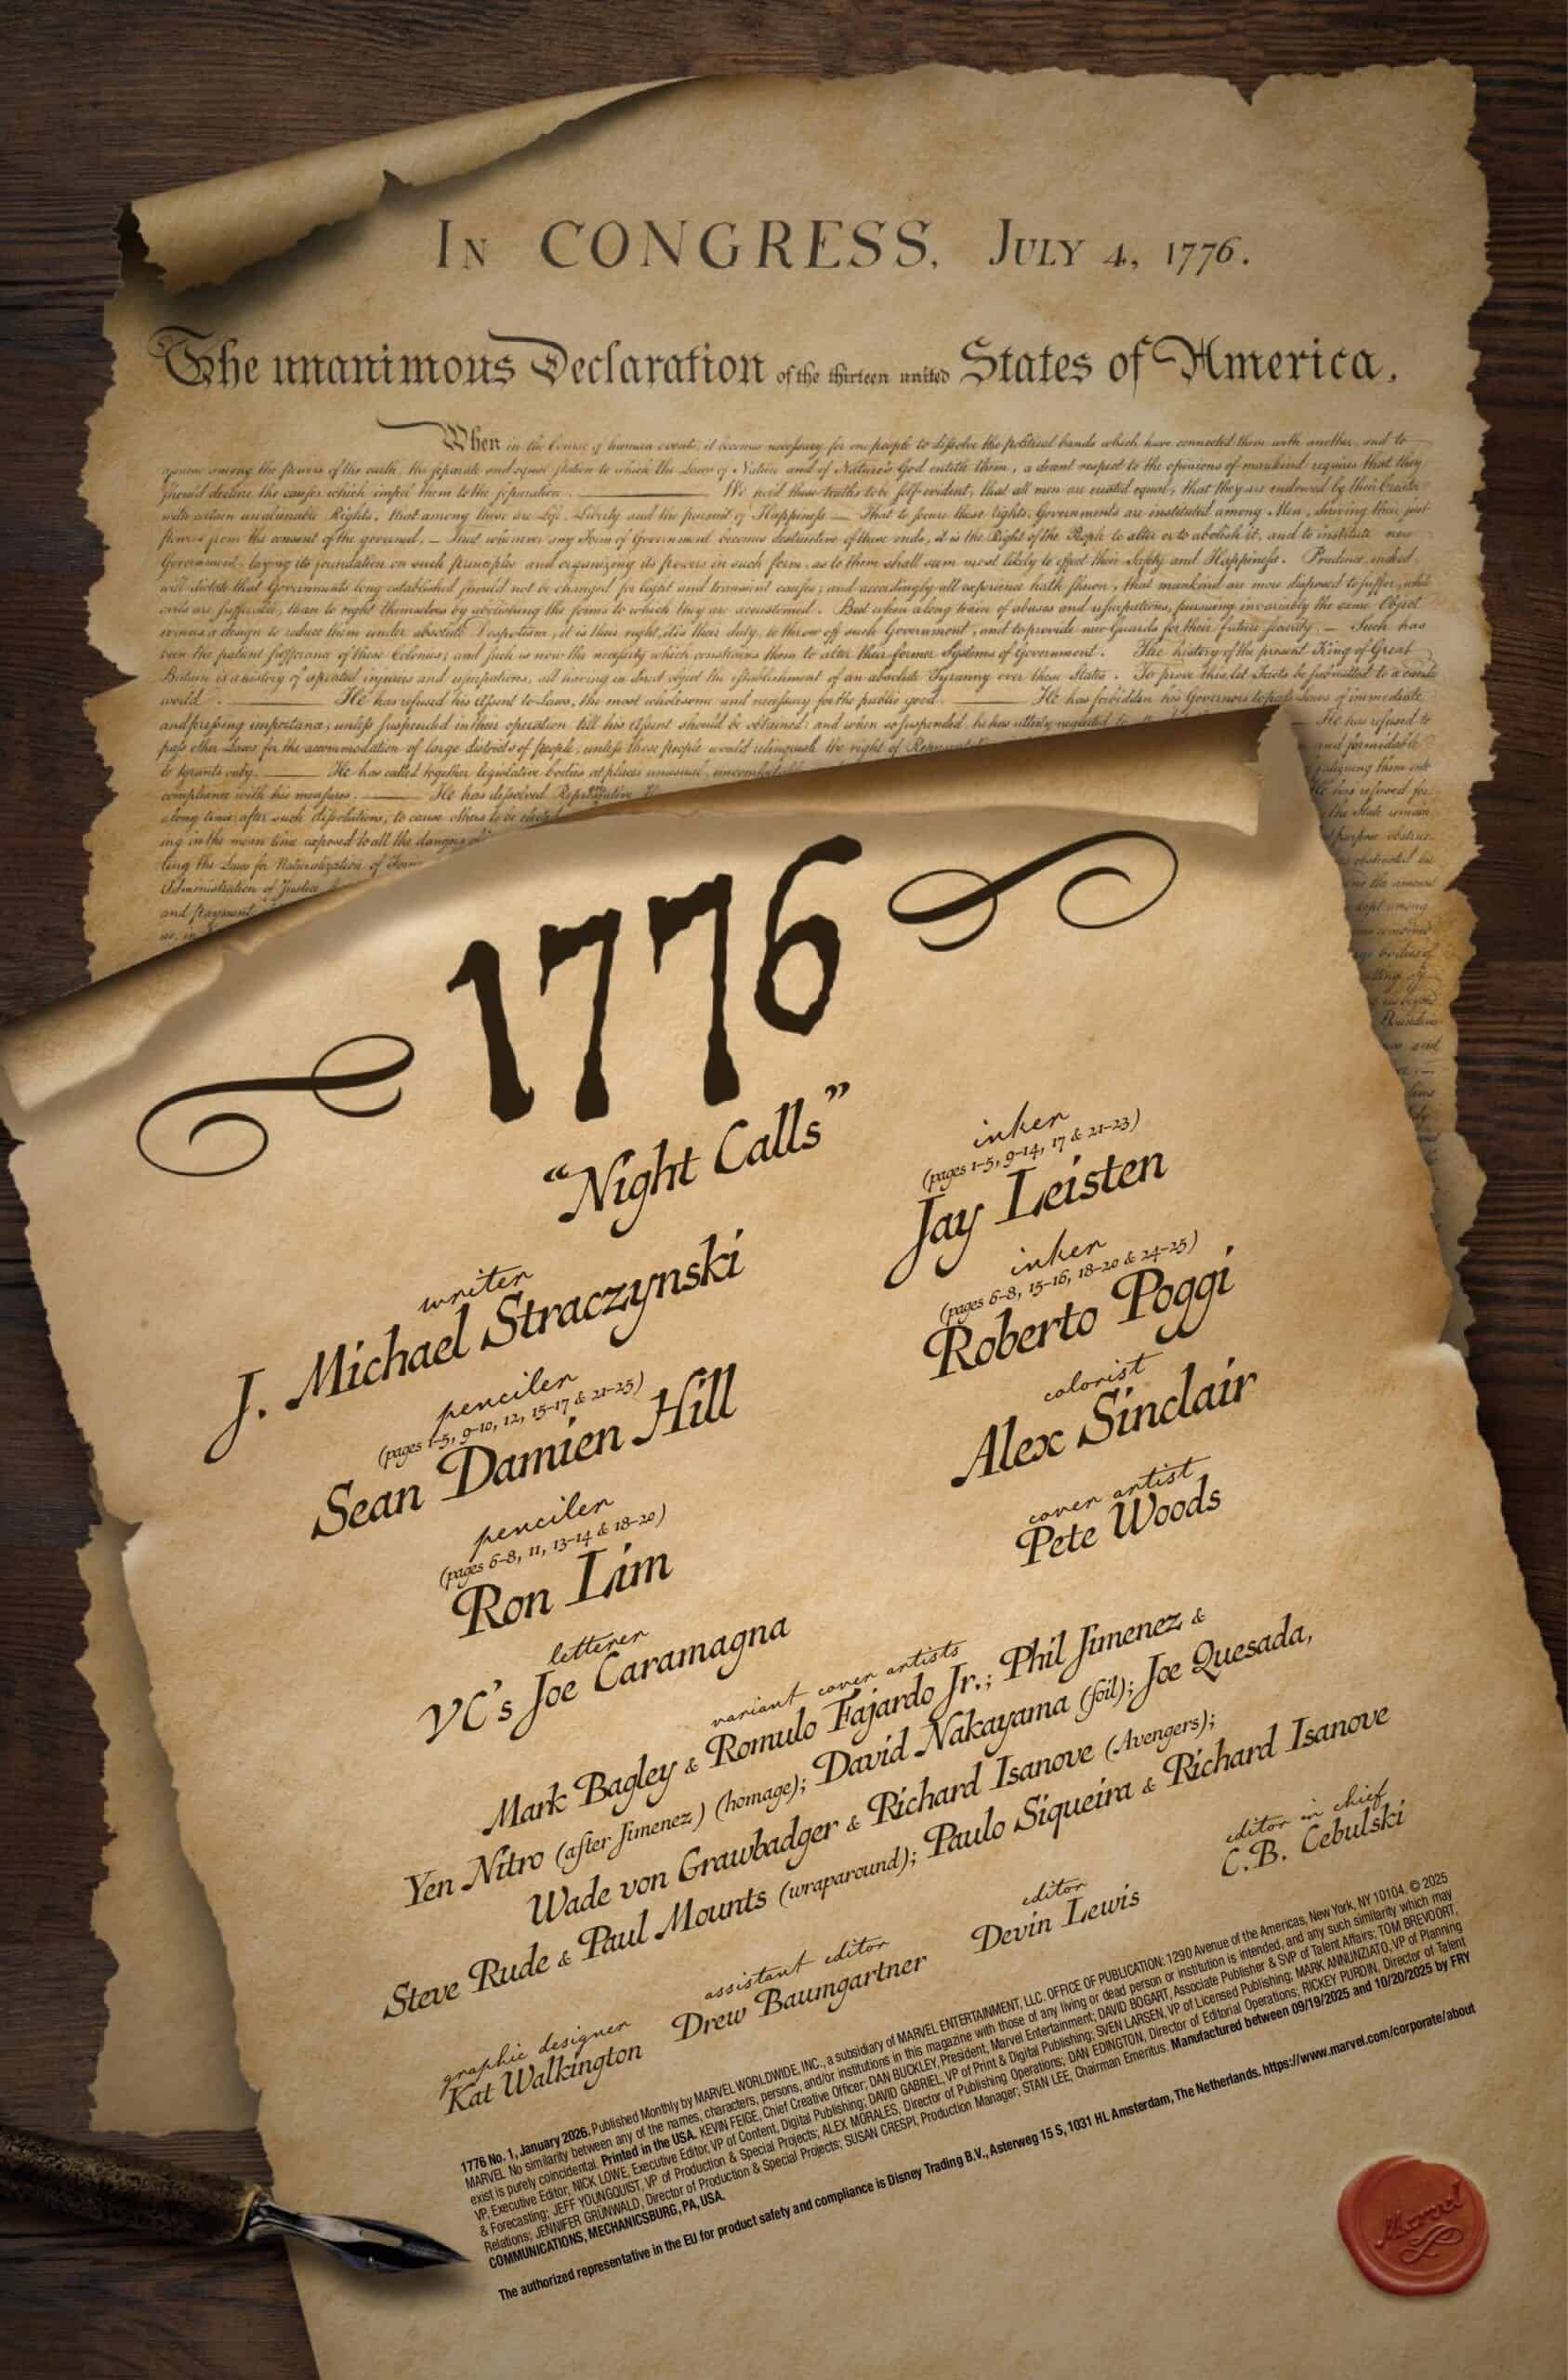 In CONGRESS, July 4, 1776.
The unanimous Declaration of the thirteen united States of America,
When in the Course of human events, it becomes necessary for one people to dissolve the political bands which have connected them with another, and to
assume among the powers of the earth, the separate and equal station to which the Laws of Nature and of Nature's God entitle them, a decent respect to the opinions of mankind requires that they
should declare the causes which impel them to the separation. We hold these truths to be self-evident, that all men are created equal, that they are endowed by their Creator
with certain unalienable Rights, that among these are Life, Liberty and the pursuit of Happiness — That to secure these rights, Governments are instituted among Men, deriving their just
powers from the consent of the governed, — That whenever any Form of Government becomes destructive of these ends, it is the Right of the People to alter or to abolish it, and to institute new
Government, laying its foundation on such principles and organizing its powers in such form, as to them shall seem most likely to effect their Safety and Happiness. Prudence, indeed,
will dictate that Governments long established should not be changed for light and transient causes; and accordingly all experience hath shewn, that mankind are more disposed to suffer, while
evils are sufferable, than to right themselves by abolishing the forms to which they are accustomed. But when a long train of abuses and usurpations, pursuing invariably the same Object
evinces a design to reduce them under absolute Despotism, it is their right, it is their duty, to throw off such Government, and to provide new Guards for their future security. — Such has
been the patient sufferance of these Colonies; and such is now the necessity which constrains them to alter their former Systems of Government. The history of the present King of Great
Britain is a history of repeated injuries and usurpations, all having in direct object the establishment of an absolute Tyranny over these States. To prove this, let Facts be submitted to a candid
world. He has refused his Assent to Laws, the most wholesome and necessary for the public good. He has forbidden his Governors to pass Laws of immediate
and pressing importance, unless suspended in their operation till his Assent should be obtained; and when so suspended, he has utterly neglected to He has refused to
pass other Laws for the accommodation of large districts of people, unless those people would relinquish the right of and formidable
to tyrants only. He has called together legislative bodies at places unusual, uncomfortable
compliance with his measures. He has dissolved He has refused for
along time, after such dissolutions, to cause others to be the State remain
ing in the mean time exposed to all the dangers of
ting the Laws for Naturalization of
Administration of Justice
and payment
1776
"Night Calls"
writer
J. Michael Straczynski
penciler
(pages 1-5, 9-10, 12, 15-17 & 21-25)
Sean Damien Hill
penciler
(pages 6-8, 11, 13-14 & 18-20)
Ron Lim
letterer
VC's Joe Caramagna
inker
(pages 1-5, 9-14, 17 & 21-23)
Jay Leisten
inker
(pages 6-8, 15-16, 18-20 & 24-25)
Roberto Poggi
colorist
Alex Sinclair
cover artist
Pete Woods
variant cover artists
Mark Bagley & Romulo Fajardo Jr.; Phil Jimenez &
Yen Nitro (after Jimenez) (homage); David Nakayama (foil); Joe Quesada,
Wade von Grawbadger & Richard Isanove (Avengers);
Steve Rude & Paul Mounts (wraparound); Paulo Siqueira & Richard Isanove
graphic designer
Kat Walkington
assistant editor
Drew Baumgartner
editor
Devin Lewis
editor in chief
C.B. Cebulski
1776 No. 1, January 2026. Published Monthly by MARVEL WORLDWIDE, INC., a subsidiary of MARVEL ENTERTAINMENT, LLC. OFFICE OF PUBLICATION: 1290 Avenue of the Americas, New York, NY 10104. © 2025
MARVEL No similarity between any of the names, characters, persons, and/or institutions in this magazine with those of any living or dead person or institution is intended, and any such similarity which may
exist is purely coincidental. Printed in the USA. KEVIN FEIGE, Chief Creative Officer; DAN BUCKLEY, President, Marvel Entertainment; DAVID BOGART, Associate Publisher & SVP of Talent Affairs; TOM BREVOORT,
VP, Executive Editor; NICK LOWE, Executive Editor, VP of Content, Digital Publishing; DAVID GABRIEL, VP of Print & Digital Publishing; SVEN LARSEN, VP of Licensed Publishing; MARK ANNUNZIATO, VP of Planning
& Forecasting; JEFF YOUNGQUIST, VP of Production & Special Projects; ALEX MORALES, Director of Publishing Operations; DAN EDINGTON, Director of Editorial Operations; RICKEY PURDIN, Director of Talent
Relations; JENNIFER GRÜNWALD, Director of Production & Special Projects; SUSAN CRESPI, Production Manager; STAN LEE, Chairman Emeritus. Manufactured between 09/19/2025 and 10/20/2025 by FRY
COMMUNICATIONS, MECHANICSBURG, PA, USA.
The authorized representative in the EU for product safety and compliance is Disney Trading B.V., Asterweg 15 S, 1031 HL Amsterdam, The Netherlands. https://www.marvel.com/corporate/about
Marvel